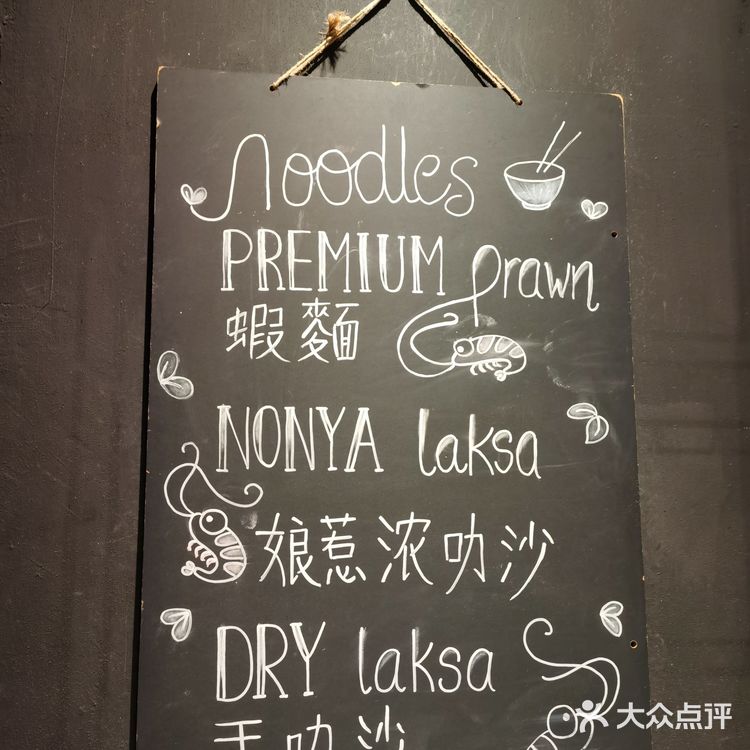 noodles
PREMIUM Prawn
蝦麵
NONYA laksa
娘惹浓叻沙
DRY laksa
干叻沙
大众点评